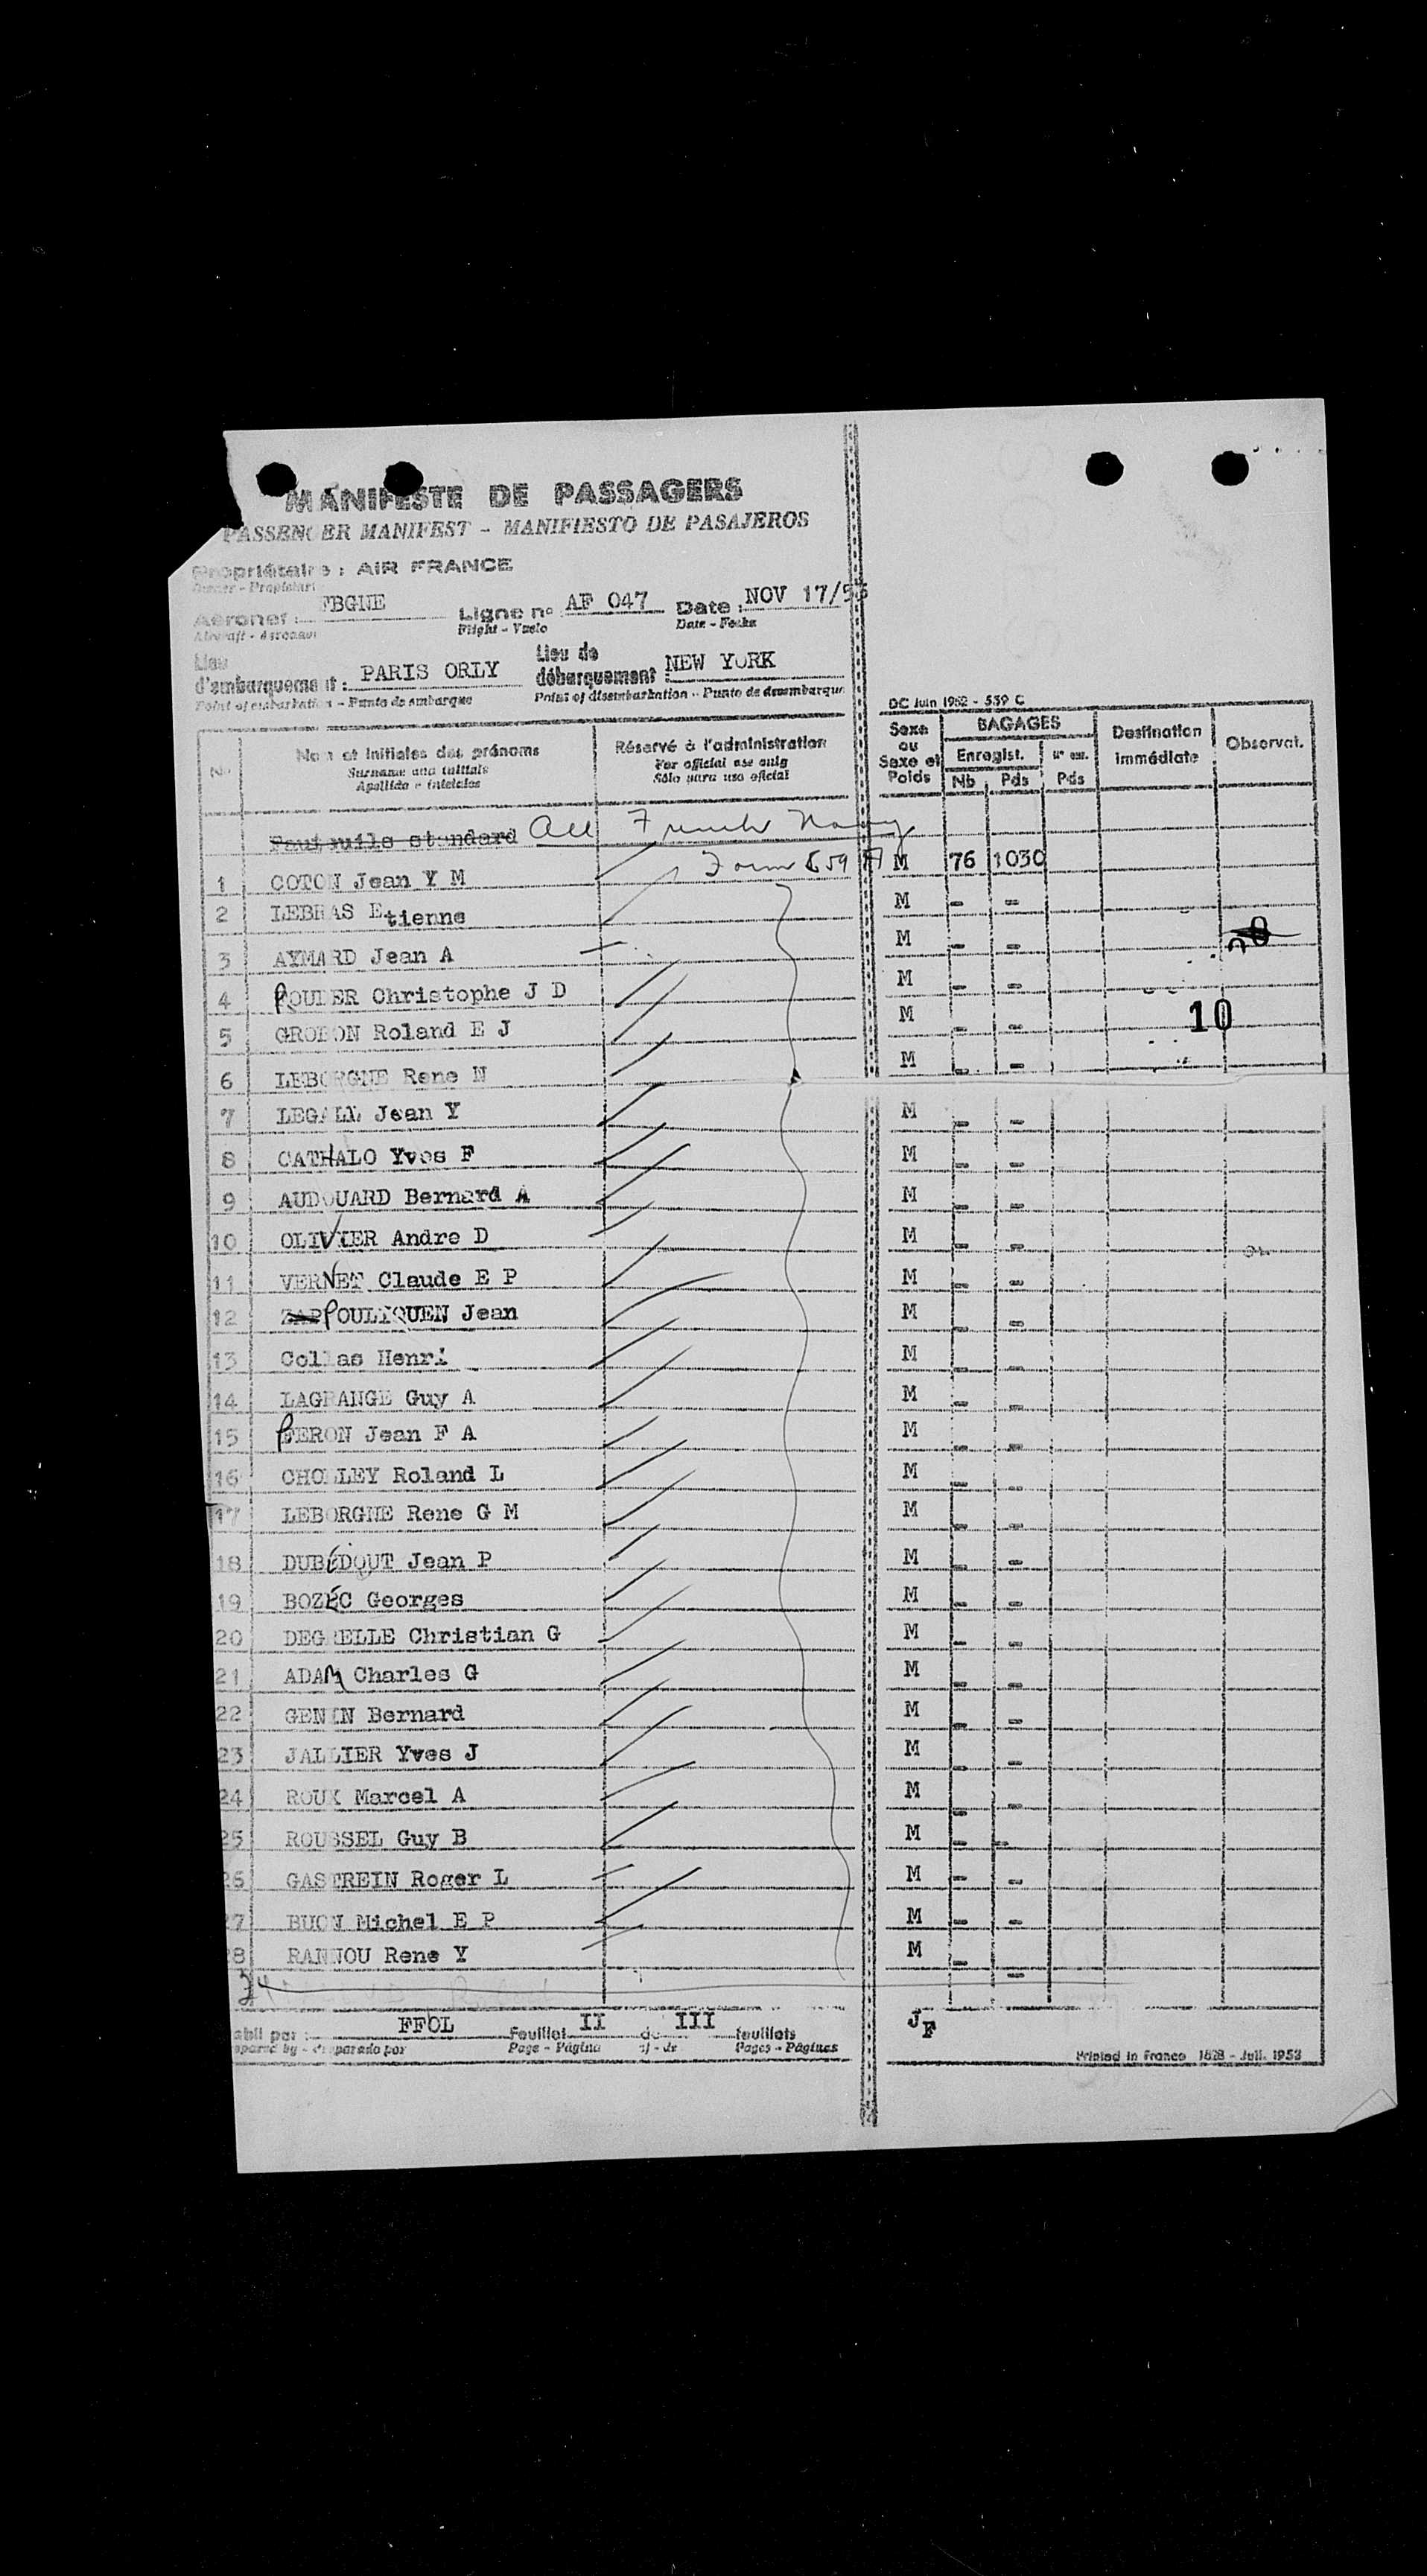 MANIFESTE DE PASSAGERS
PASSENGER MANIFEST - MANIFIESTO DE PASAJEROS
Propriétaire : AIR FRANCE
Owner - Propietari
Aéronef : FBGNE Ligne n° AF 047 Date : NOV 17/53
Aircraft - Aeronave Flight - Vuelo Date - Fecha
Lieu d'embarquement : PARIS ORLY Lieu de débarquement : NEW YORK
Point of embarkation - Punto de embarque Point of disembarkation - Punto de desembarque
DC Juin 1952 - 559 C
N° Nom et initiales des prénoms Réservé à l'administration Sexe ou Sexe et Poids BAGAGES Destination immédiate Observat.
Surname and initials For official use only Enregist. N° en.
Apellido e iniciales Sólo para uso oficial Nb Pds Pds
Fauteuils standard All French Navy
1 COTON Jean Y M Form 259 A M 76 1030
2 LEBRAS Etienne M - -
3 AYMARD Jean A M - -
4 POUDER Christophe J D M - -
5 GROBON Roland E J M - - 10
6 LEBORGNE Rene N M - -
7 LEGALL Jean Y M - -
8 CATHALO Yves F M - -
9 AUDOUARD Bernard A M - -
10 OLIVIER Andre D M - -
11 VERNET Claude E P M - -
12 ZAP POULIQUEN Jean M - -
13 Collas Henri M - -
14 LAGRANGE Guy A M - -
15 PERON Jean F A M - -
16 CHOLLEY Roland L M - -
17 LEBORGNE Rene G M M - -
18 DUBÉDOUT Jean P M - -
19 BOZÉC Georges M - -
20 DEGRELLE Christian G M - -
21 ADAM Charles G M - -
22 GENIN Bernard M - -
23 JALLIER Yves J M - -
24 ROUX Marcel A M - -
25 ROUSSEL Guy B M - -
26 GASTREIN Roger L M - -
27 BUON Michel E P M - -
28 RANNOU Rene Y M - -
abli par : FFOL Feuillet II de III feuillets JF
epared by - Preparado por Page - Página of - de Pages - Páginas Printed in France 1828 - Juil. 1953